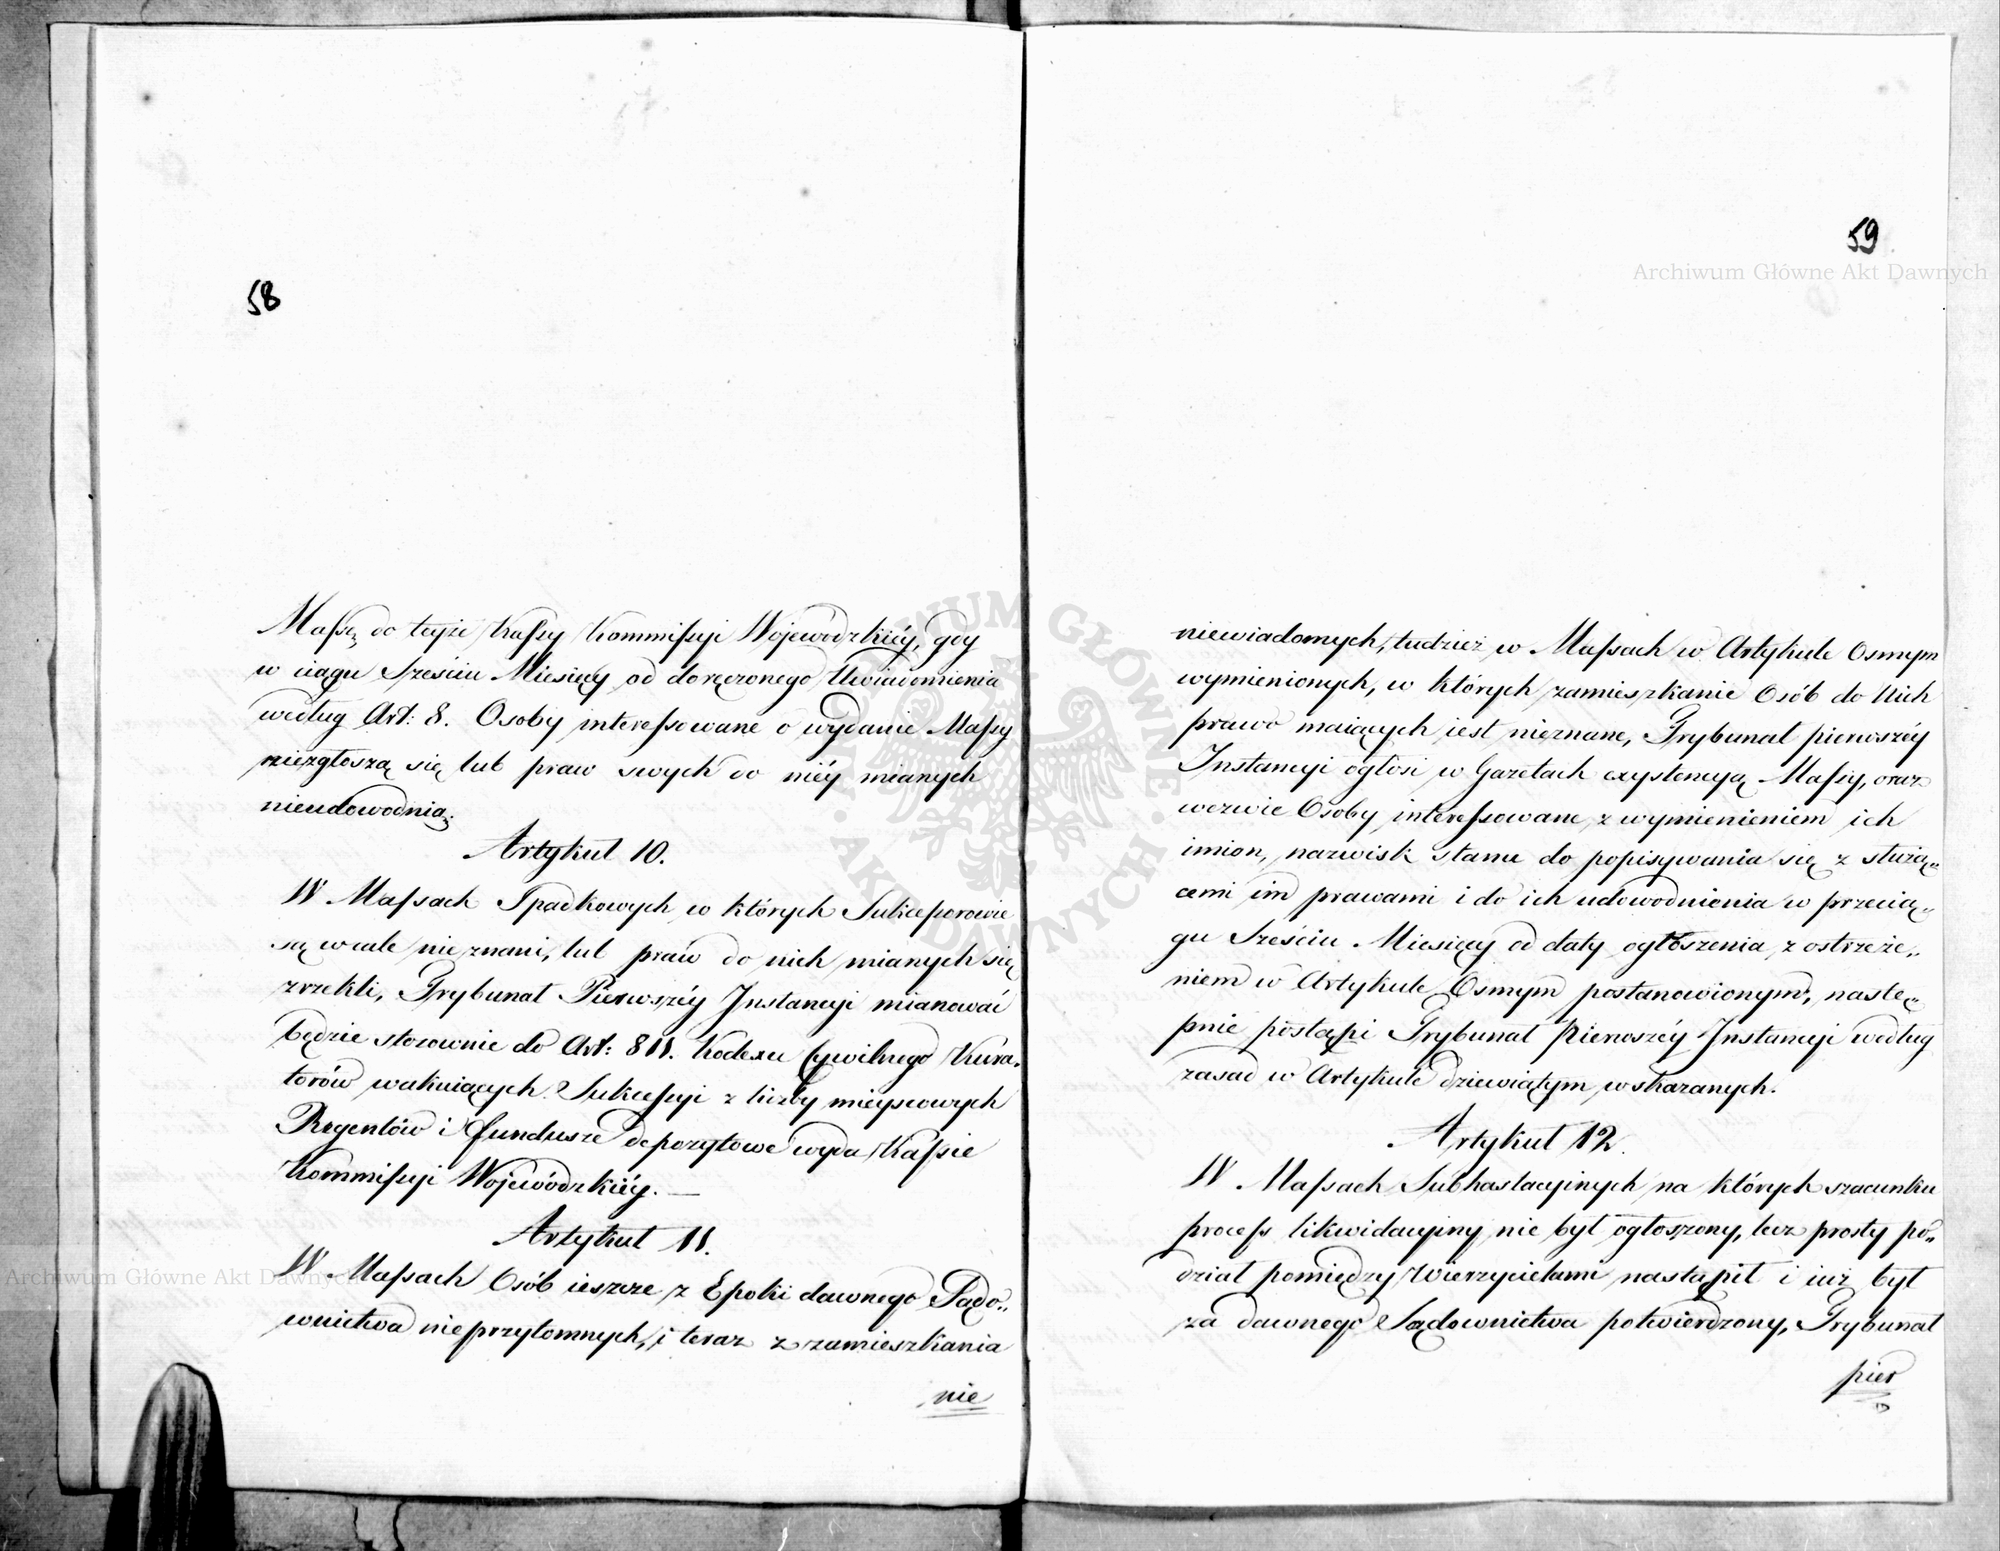 58
Massę do teyże Kassy Kommissyi Wojewodzkiéy, gdy
w ciągu Sześciu Miesięcy od doręczonego Uwiadomienia
według Art: 8. Osoby interessowane o wydanie Massy
niezgłoszą się lub praw swych do niéy mianych
nieudowodnią.
Artykuł 10.
W Massach Spadkowych w których Sukcessorowie
są wcale nieznani, lub praw do nich mianych się
zrzekli, Trybunał Pierwszéy Instancyi mianować
będzie stosownie do Art: 811. Kodexu Cywilnego Kura-
torów wakuiących Sukcessyi z liczby mieyscowych
Regentów i fundusze depozytowe wyda Kassie
Kommissyi Wojewódzkiéy. —
Artykuł 11.
W Massach Osób ieszcze z Epoki dawnego Sądo„
wnictwa nieprzytomnych, i teraz z zamieszkania
nie
59
niewiadomych, tudzież w Massach w Artykule Osmym
wymienionych, w których zamieszkanie Osób do Nich
prawo maiących iest nieznane, Trybunał pierwszéy
Instancyi ogłosi w Gazetach exystencyą Massy, oraz
wezwie Osoby interessowane z wymienieniem ich
imion, nazwisk stanu do popisywania się z służą„
cemi im prawami i do ich udowodnienia w przecią„
gu Sześciu Miesięcy od daty ogłoszenia z ostrzeże„
niem w Artykule Osmym postanowionym, nastę„
pnie postąpi Trybunał Pierwszéy Instancyi według
zasad w Artykule dziewiątym wskazanych.
Artykuł 12.
W Massach Subhastacyinych na których szacunku
process likwidacyiny nie był ogłoszony, lecz prosty po„
dział pomiędzy Wierzycielami nastąpił i iuż był
za dawnego Sądownictwa potwierdzony, Trybunał
pier
Archiwum Główne Akt Dawnych
Archiwum Główne Akt Dawnych
ARCHIWUM GŁÓWNE · AKT DAWNYCH ·